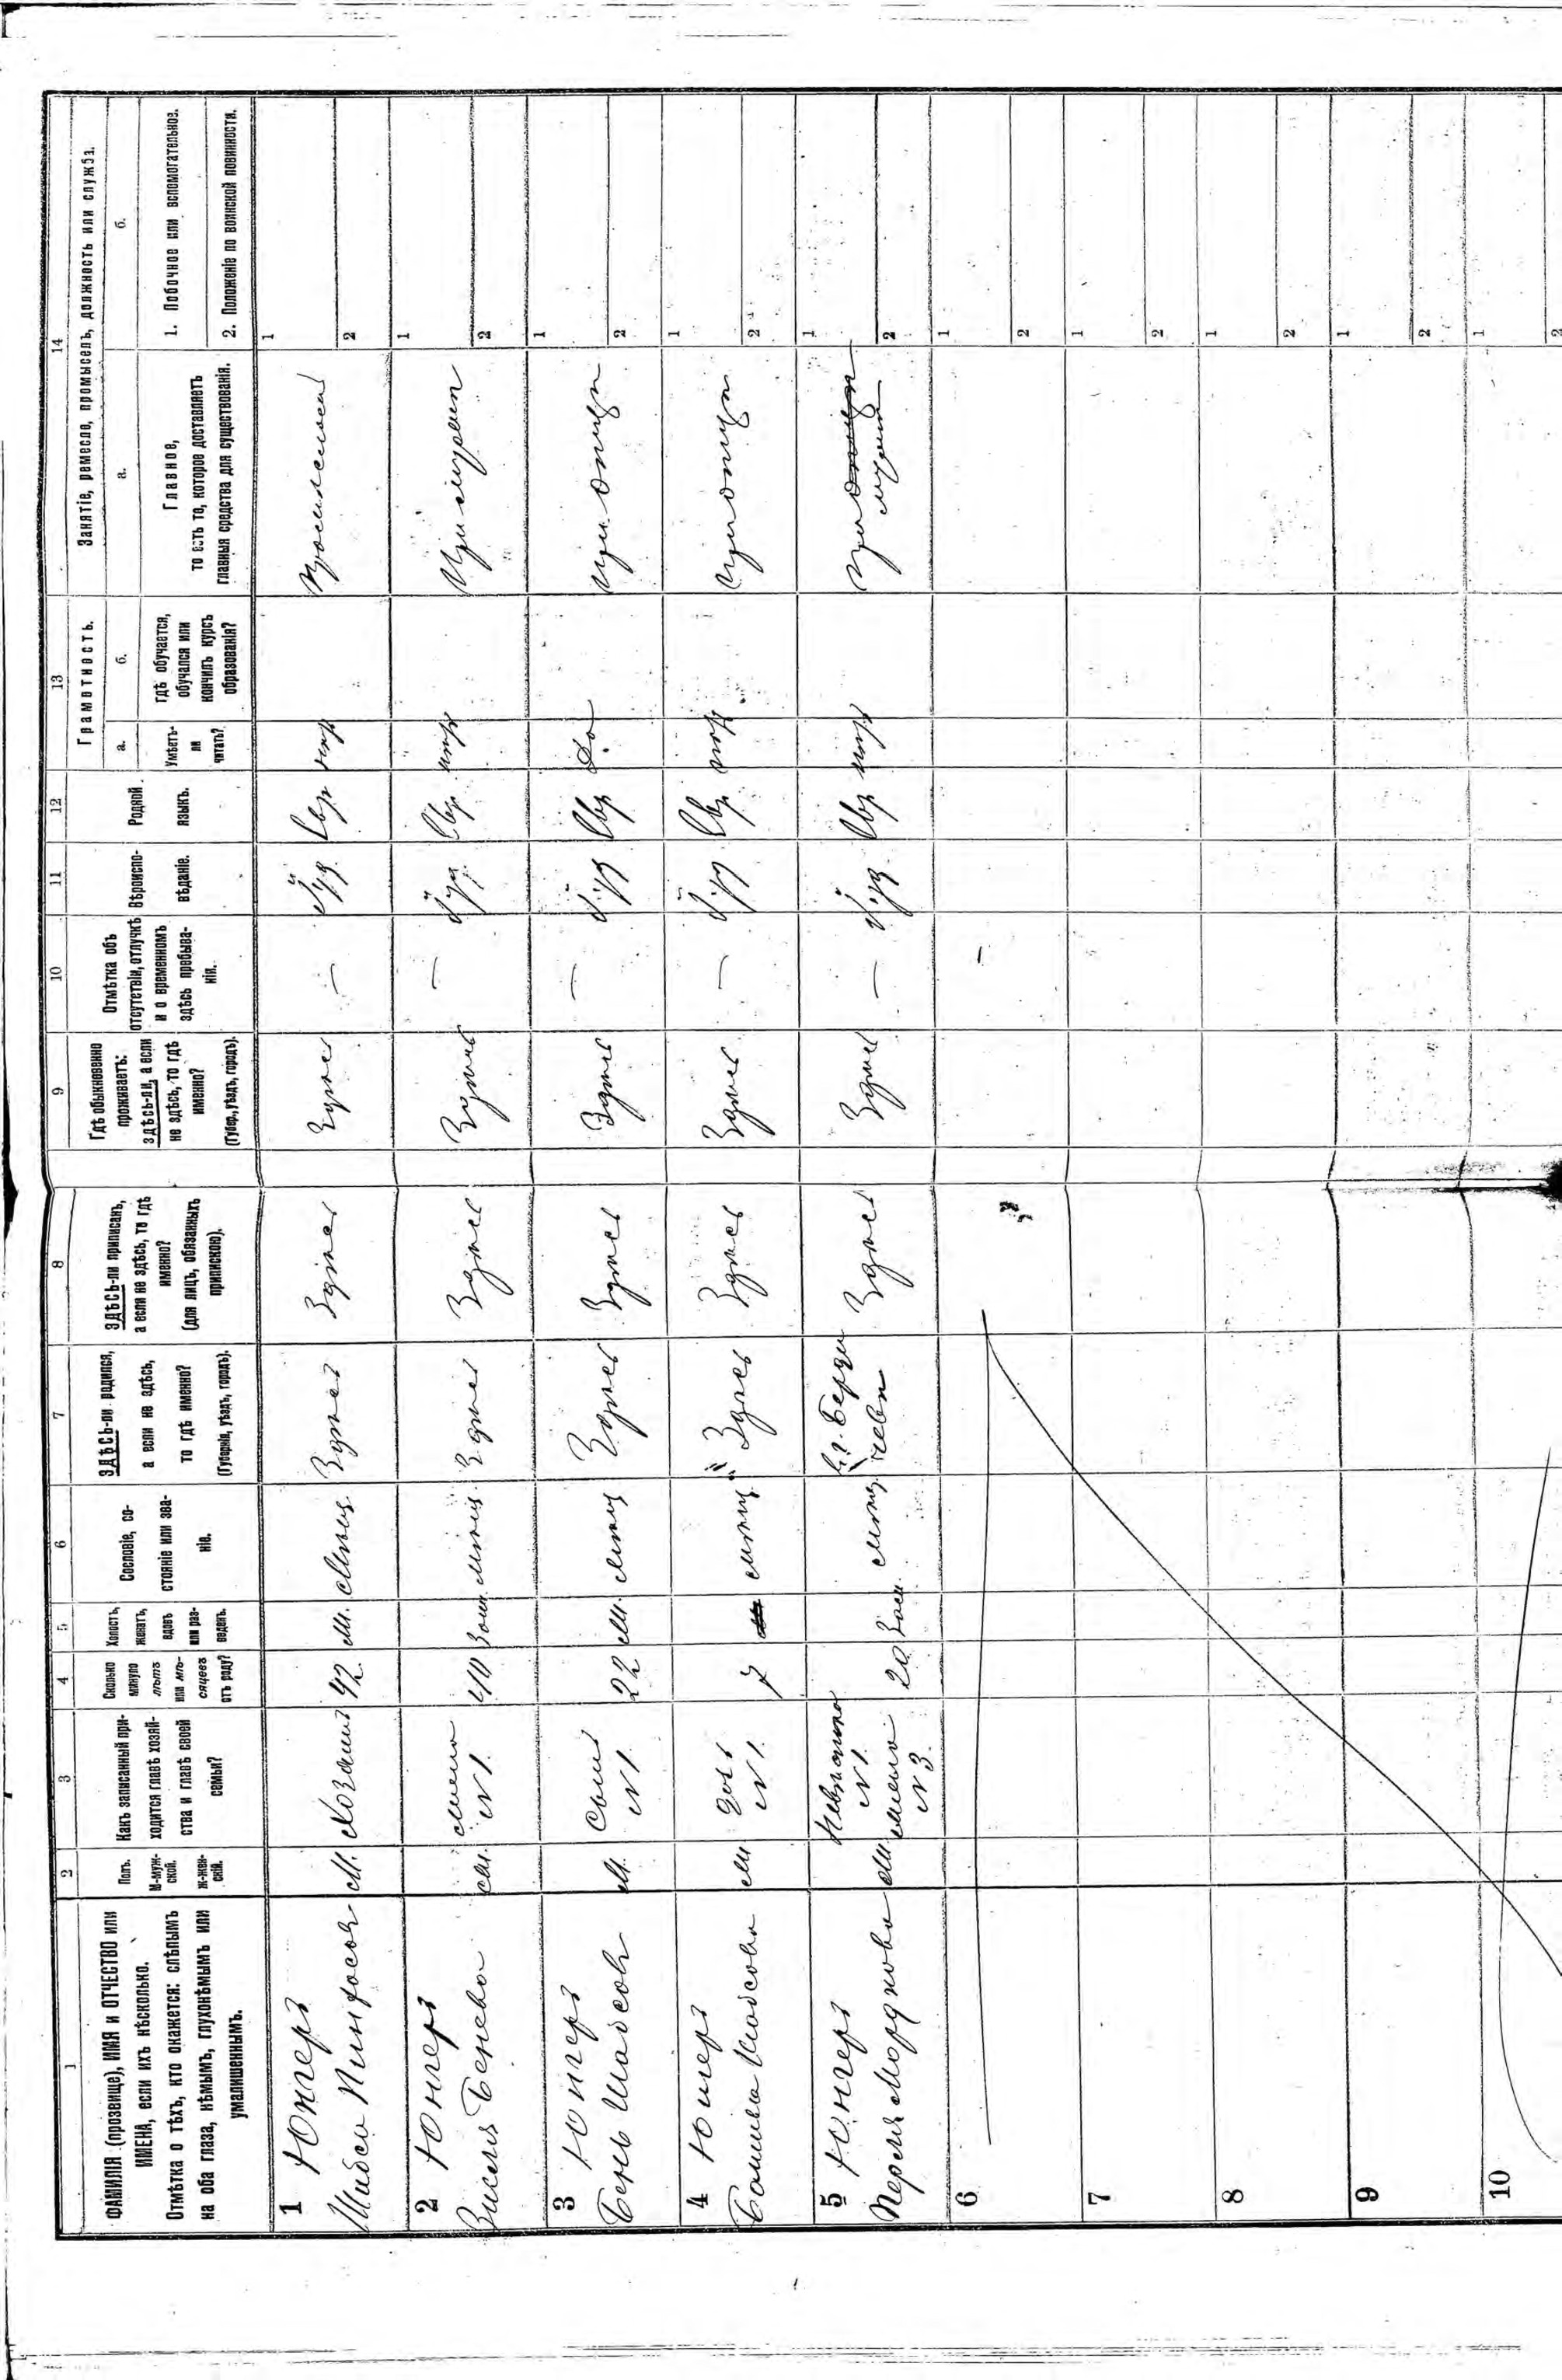 1
ФАМИЛІЯ (прозвище), ИМЯ и ОТЧЕСТВО или
ИМЕНА, если ихъ нѣсколько.
Отмѣтка о тѣхъ, кто окажется: слѣпымъ
на оба глаза, нѣмымъ, глухонѣмымъ или
умалишеннымъ.
2
Полъ.
М-муж-
ской.
Ж-жен-
скій.
3
Какъ записанный при-
ходится главѣ хозяй-
ства и главѣ своей
семьи?
4
Сколько
минуло
лѣтъ
или мѣ-
сяцевъ
отъ роду?
5
Холостъ,
женатъ,
вдовъ
или раз-
веденъ.
6
Сословіе, со-
стояніе или зва-
ніе.
7
ЗДѢСЬ-ли родился,
а если не здѣсь,
то гдѣ именно?
(Губернія, уѣздъ, городъ).
8
ЗДѢСЬ-ли приписанъ,
а если не здѣсь, то гдѣ
именно?
(для лицъ, обязанныхъ
припискою).
9
Гдѣ обыкновенно
проживаетъ:
здѣсь-ли, а если
не здѣсь, то гдѣ
именно?
(Губер., уѣздъ, городъ).
10
Отмѣтка объ
отсутствіи, отлучкѣ
и о временномъ
здѣсь пребыва-
ніи.
11
Вѣроиспо-
вѣданіе.
12
Родной
языкъ.
13
Грамотность.
а.
Умѣетъ-
ли
читать?
б.
Гдѣ обучается,
обучался или
кончилъ курсъ
образованія?
14
Занятіе, ремесло, промыселъ, должность или служба.
а.
Главное,
то есть то, которое доставляетъ
главныя средства для существованія.
б.
1. Побочное или вспомогательное.
2. Положеніе по воинской повинности.
1 Юнгеръ
Пинхосов М. Хозяинъ 42 М. Мѣщ. Здѣсь Здѣсь Здѣсь — Іуд. Евр
1
2
2 Юнгеръ
Бенева жена N 1. 40 Зам. мѣщ. Здѣсь Здѣсь Здѣсь — Іуд Евр При мужѣ
1
2
3 Юнгеръ
Бень Шабсов М. Сынъ N 1. 22 М. мѣщ Здѣсь Здѣсь Здѣсь — Іуд Евр Да При отцѣ
1
2
4 Юнгеръ
Шабсова дочь N 1. 7 мѣщ Здѣсь Здѣсь Здѣсь — Іуд Евр При отцѣ
1
2
5 Юнгеръ
Перля Мордкова Невѣстка N 1. жена N 3. 20 Зам. мѣщ В г. Берди
чевѣ Здѣсь Здѣсь — Іуд Евр При отцѣ
мужѣ
1
2
6
1
2
7
1
2
8
1
2
9
1
2
10
1
2